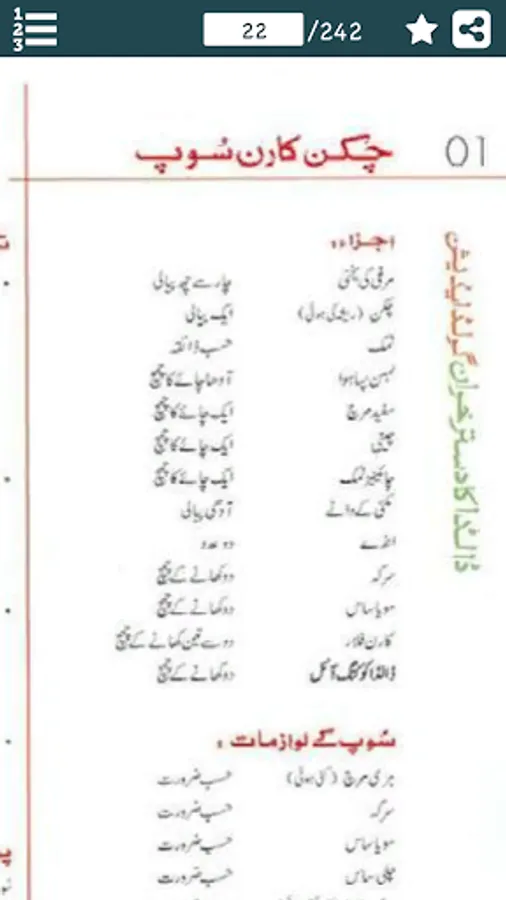 1
2
3
22 /242
01 چکن کارن سُوپ
اجزاء:
مرغی کی یخنی چار سے چھ پیالی
چکن (ریشہ کی ہوئی) ایک پیالی
نمک حسب ذائقہ
لہسن پسا ہوا آدھا چائے کا چمچ
سفید مرچ ایک چائے کا چمچ
چینی ایک چائے کا چمچ
چائنیز نمک ایک چائے کا چمچ
مکئی کے دانے آدھی پیالی
انڈے دو عدد
سرکہ دو کھانے کے چمچ
سویا ساس دو کھانے کے چمچ
کارن فلار دو سے تین کھانے کے چمچ
ڈالڈا کوکنگ آئل دو کھانے کے چمچ
سُوپ کے لوازمات:
ہری مرچ (کٹی ہوئی) حسب ضرورت
سرکہ حسب ضرورت
سویا ساس حسب ضرورت
چلی ساس حسب ضرورت
ڈالڈا کا دسترخوان گولڈ ایڈیشن